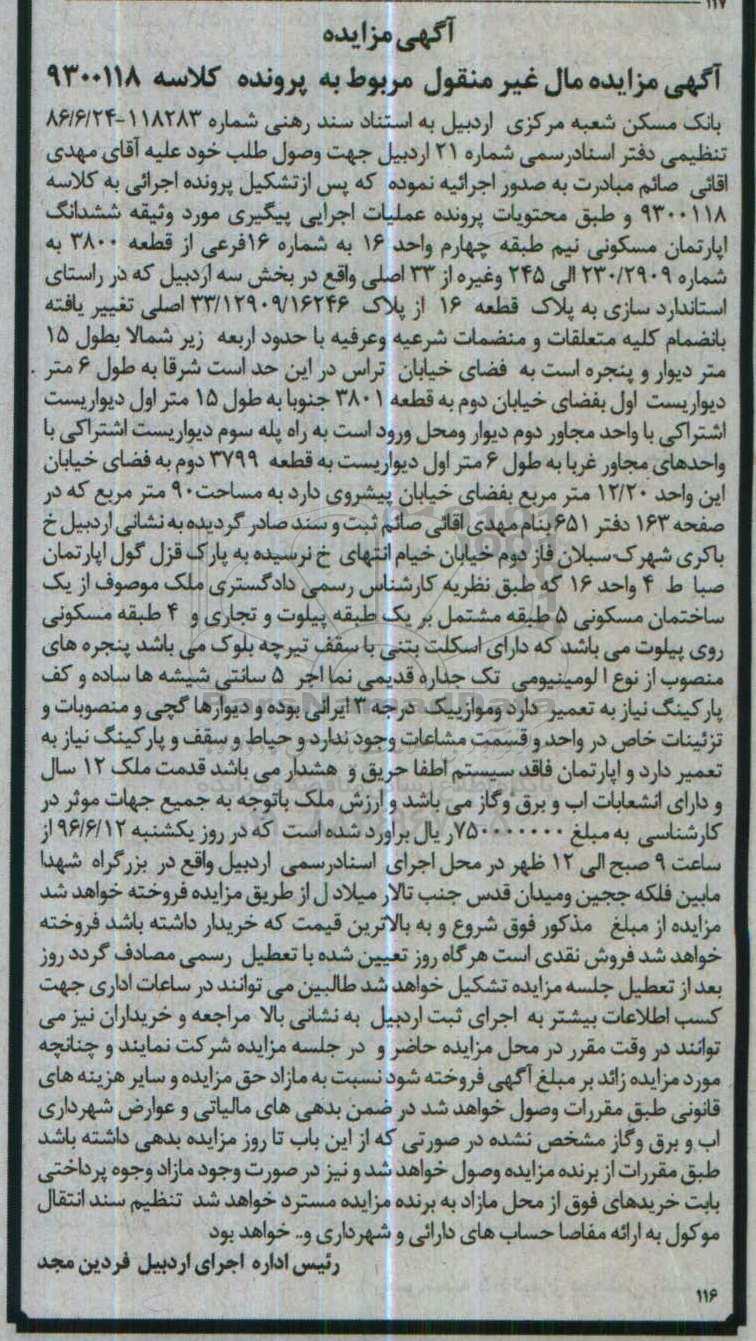 ۱۱۷
آگهی مزایده
آگهی مزایده مال غیر منقول مربوط به پرونده کلاسه ۹۳۰۰۱۱۸
بانک مسکن شعبه مرکزی اردبیل به استناد سند رهنی شماره ۱۱۸۲۸۳-۸۶/۶/۲۴
تنظیمی دفتر اسنادرسمی شماره ۲۱ اردبیل جهت وصول طلب خود علیه آقای مهدی
اقائی صائم مبادرت به صدور اجرائیه نموده که پس ازتشکیل پرونده اجرائی به کلاسه
۹۳۰۰۱۱۸ و طبق محتویات پرونده عملیات اجرایی پیگیری مورد وثیقه ششدانگ
اپارتمان مسکونی نیم طبقه چهارم واحد ۱۶ به شماره ۱۶فرعی از قطعه ۳۸۰۰ به
شماره ۲۳۰/۲۹۰۹ الی ۲۴۵ وغیره از ۳۳ اصلی واقع در بخش سه اردبیل که در راستای
استاندارد سازی به پلاک قطعه ۱۶ از پلاک ۳۳/۱۲۹۰۹/۱۶۲۴۶ اصلی تغییر یافته
بانضمام کلیه متعلقات و منضمات شرعیه وعرفیه با حدود اربعه زیر شمالا بطول ۱۵
متر دیوار و پنجره است به فضای خیابان تراس در این حد است شرقا به طول ۶ متر
دیواریست اول بفضای خیابان دوم به قطعه ۳۸۰۱ جنوبا به طول ۱۵ متر اول دیواریست
اشتراکی با واحد مجاور دوم دیوار ومحل ورود است به راه پله سوم دیواریست اشتراکی با
واحدهای مجاور غربا به طول ۶ متر اول دیواریست به قطعه ۳۷۹۹ دوم به فضای خیابان
این واحد ۱۲/۲۰ متر مربع بفضای خیابان پیشروی دارد به مساحت۹۰ متر مربع که در
صفحه ۱۶۳ دفتر ۶۵۱ بنام مهدی اقائی صائم ثبت و سند صادر گردیده به نشانی اردبیل خ
باکری شهرک سبلان فاز دوم خیابان خیام انتهای خ نرسیده به پارک قزل گول اپارتمان
صبا ط ۴ واحد ۱۶ که طبق نظریه کارشناس رسمی دادگستری ملک موصوف از یک
ساختمان مسکونی ۵ طبقه مشتمل بر یک طبقه پیلوت و تجاری و ۴ طبقه مسکونی
روی پیلوت می باشد که دارای اسکلت بتنی با سقف تیرچه بلوک می باشد پنجره های
منصوب از نوع الومینیومی تک جداره قدیمی نما اجر ۵ سانتی شیشه ها ساده و کف
پارکینگ نیاز به تعمیر دارد وموازییک درجه ۳ ایرانی بوده و دیوارها گچی و منصوبات و
تزئینات خاص در واحد و قسمت مشاعات وجود ندارد و حیاط و سقف و پارکینگ نیاز به
تعمیر دارد و اپارتمان فاقد سیستم اطفا حریق و هشدار می باشد قدمت ملک ۱۲ سال
و دارای انشعابات اب و برق وگاز می باشد و ارزش ملک باتوجه به جمیع جهات موثر در
کارشناسی به مبلغ ۷۵۰۰۰۰۰۰۰ریال براورد شده است که در روز یکشنبه ۹۶/۶/۱۲ از
ساعت ۹ صبح الی ۱۲ ظهر در محل اجرای اسنادرسمی اردبیل واقع در بزرگراه شهدا
مابین فلکه ججین ومیدان قدس جنب تالار میلاد ل از طریق مزایده فروخته خواهد شد
مزایده از مبلغ مذکور فوق شروع و به بالاترین قیمت که خریدار داشته باشد فروخته
خواهد شد فروش نقدی است هرگاه روز تعیین شده با تعطیل رسمی مصادف گردد روز
بعد از تعطیل جلسه مزایده تشکیل خواهد شد طالبین می توانند در ساعات اداری جهت
کسب اطلاعات بیشتر به اجرای ثبت اردبیل به نشانی بالا مراجعه و خریداران نیز می
توانند در وقت مقرر در محل مزایده حاضر و در جلسه مزایده شرکت نمایند و چنانچه
مورد مزایده زائد بر مبلغ آگهی فروخته شود نسبت به مازاد حق مزایده و سایر هزینه های
قانونی طبق مقررات وصول خواهد شد در ضمن بدهی های مالیاتی و عوارض شهرداری
اب و برق وگاز مشخص نشده در صورتی که از این باب تا روز مزایده بدهی داشته باشد
طبق مقررات از برنده مزایده وصول خواهد شد و نیز در صورت وجود مازاد وجوه پرداختی
بابت خریدهای فوق از محل مازاد به برنده مزایده مسترد خواهد شد تنظیم سند انتقال
موکول به ارائه مفاصا حساب های دارائی و شهرداری و.. خواهد بود
رئیس اداره اجرای اردبیل فردین مجد
۱۱۶